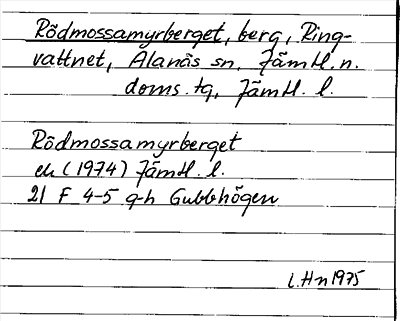 Rödmossamyrberget, berg, Ring-
vattnet, Alanäs sn. Jämtl. n.
doms. tg, Jämtl. l.
Rödmossamyrberget
ek (1974) Jämtl. l.
21 F 4-5 g-h Gubbhögen
L.Hn 1975